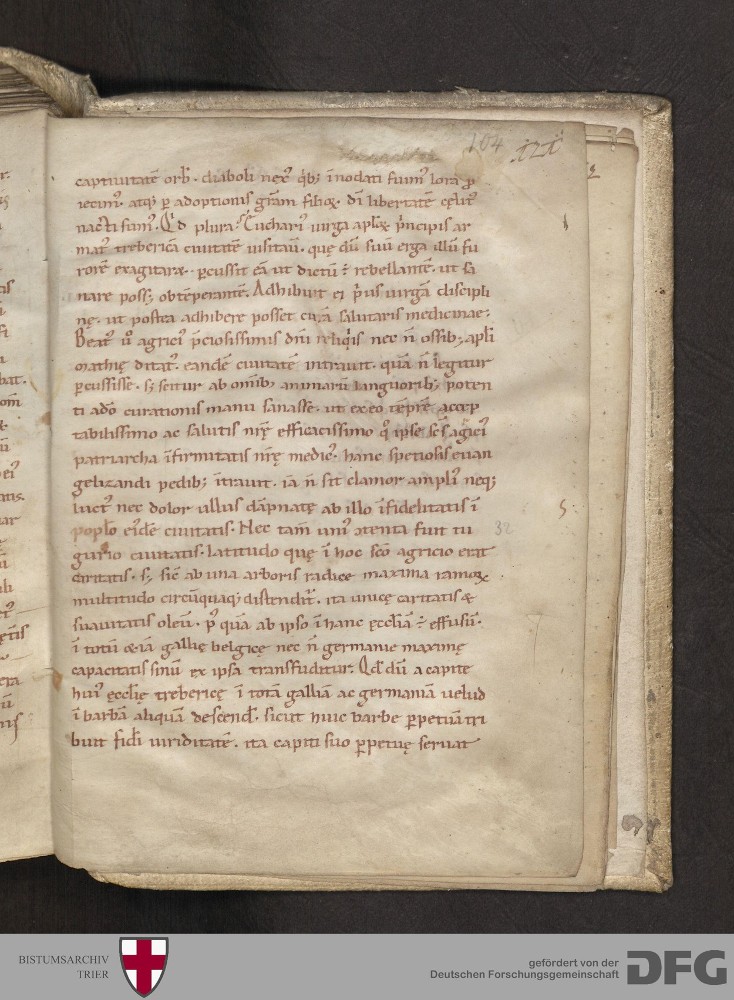 104
captiuitatē orb̄. diaboli nexꝰ q̇bꝫ inodati fuimꝰ lora ꝓ
iecimꝰ. atqꝫ ꝑ adoptionis gr̄am filioꝝ. dī libertatē cęlitꝰ
nacti sumꝰ. Q̇d plura? Eucharīꝰ uirga aplīcę p̄ncipis ar
matꝰ trebericā ciuitatē uisitauit. quę dū suū erga illū fu
rorē exagitaret. ꝑcussit eā ut dictū ē rebellantē. ut sa
nare possꝫ obtēperantē. Adhibuit ei p̄us uirgā discipli
nę. ut postea adhibere posset curā salutaris medicinae.
Beatꝰ ū agriciꝰ p̄ciosissimis dn̄i reliq̇is nec n̄ ossibꝫ apl̄i
mathię ditatꝰ. eandē ciuitatē intrauit. quā n̄ legitur
ꝑcussisse. sꝫ scitur ab om̄ibꝫ animarū languoribꝫ. poten
ti adeo curationis manu sanasse. ut ex eo tēpr̄e accep
tabilissimo ac salutis nr̄ę efficacissimo q̊ ipse sc̄s agriciꝰ
patriarcha īfirmitatis nr̄ę medicꝰ. hanc speciosis euan
gelizandi pedibꝫ ītrauit. iā n̄ sit clamor ampliꝰ neqꝫ
luctꝰ nec dolor ullus dāpnatę ab illo īfidelitatis ī
poplo eiꝰdē ciuitatis. Nec tam̄ uniꝰ ɔtenta fuit tu
gurio ciuitatis. latitudo quę ī hoc sc̄o agricio erat
caritatis. sꝫ sic̄ ab una arboris radice maxima ramoꝝ
multitudo circūquaqꝫ distendit̄. ita unicę caritatis &
suauitatis oleū. p̊ quā ab ipso ī hanc ęccl̄iā ē effusū.
ī totū &iā gallię belgicę nec n̄ germanie maximę
capacitatis sinū ex ipsa transfuditur. Qd̄ dū a capite
huiꝰ ęccl̄ię trebericę ī totā galliā ac germaniā uelud
ī barbā aliquā descend̄. sicut huic barbe ꝑpetuā tri
buit fidi uiriditatē. ita capiti suo ꝑpetuę seruat
32
BISTUMSARCHIV
TRIER
gefördert von der
Deutschen Forschungsgemeinschaft
DFG